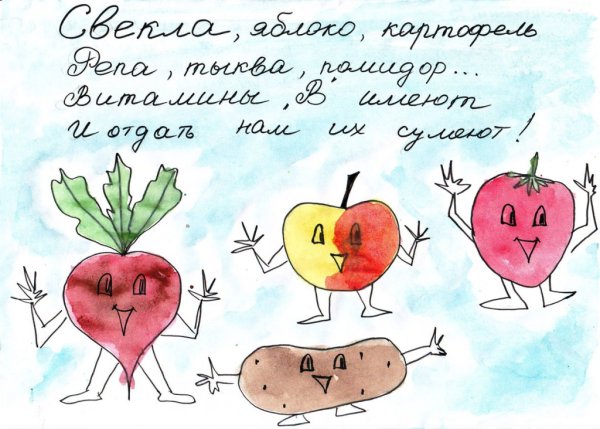 Свекла, яблоко, картофель
Репа, тыква, помидор...
Витамины „В" имеют
И отдать нам их сумеют!